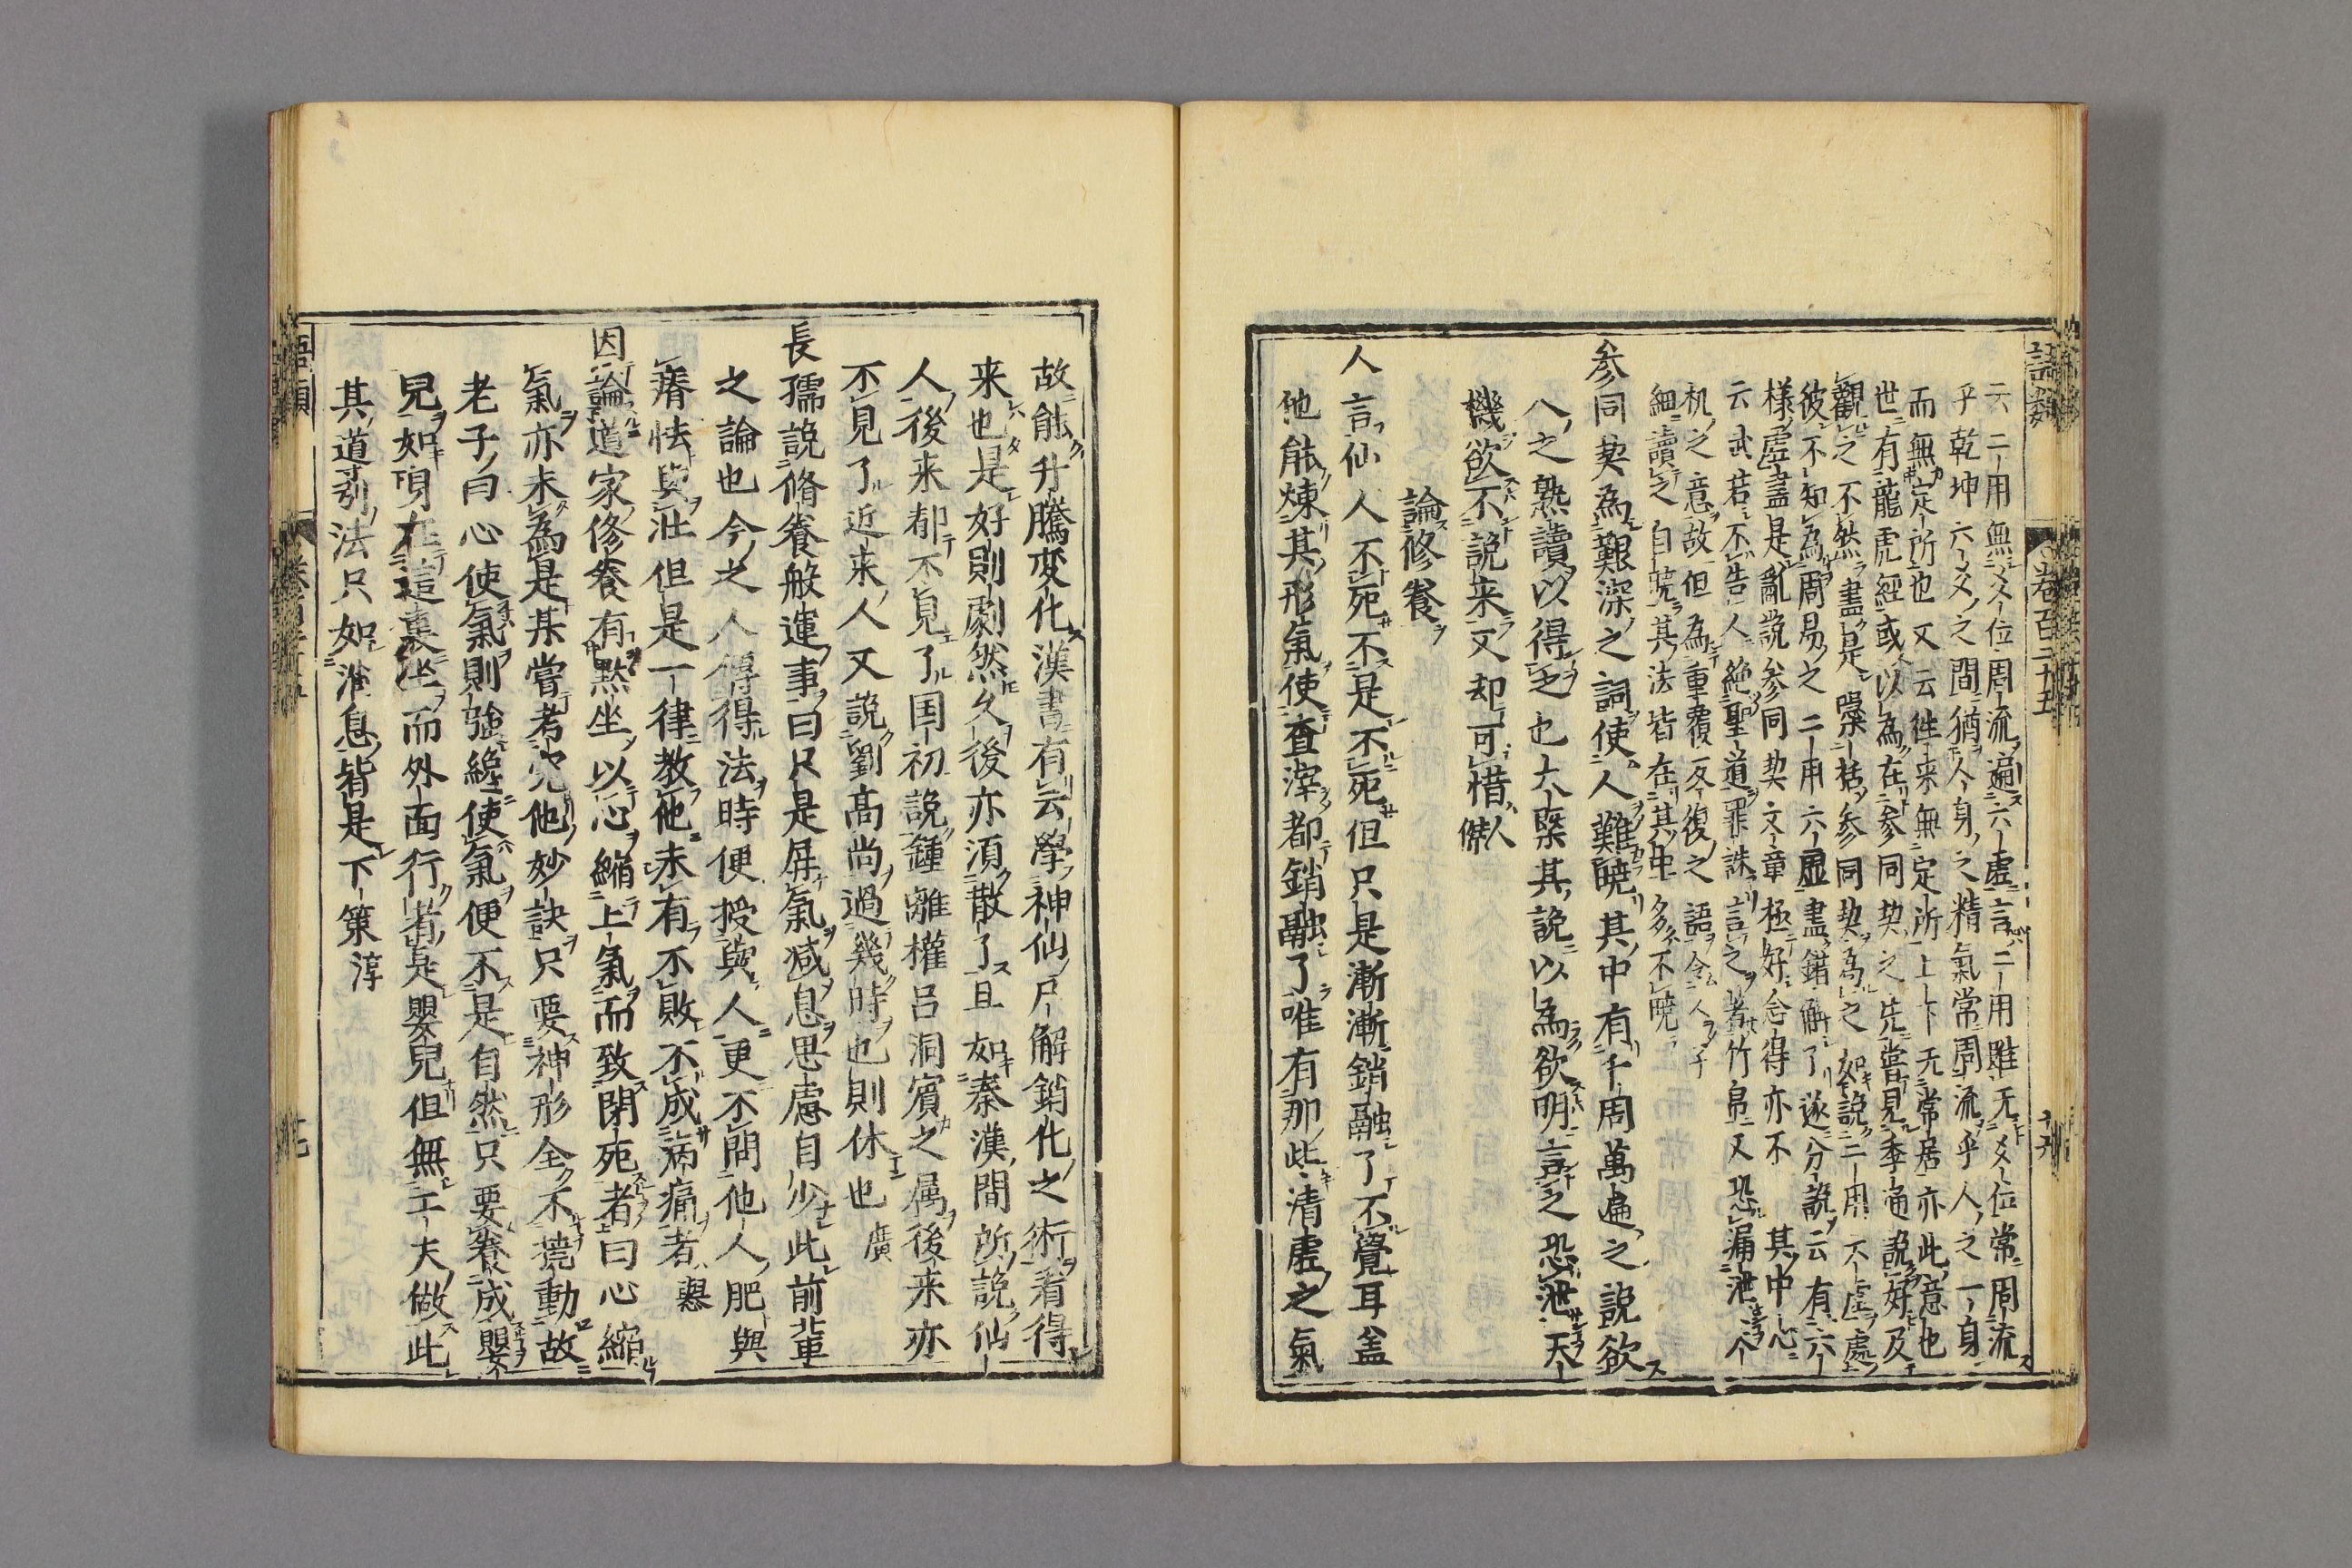 語類
卷百二十五
云二用無爻位周流遍六虛言二用雖无爻位常周流
乎乾坤六爻之間猶人身之精氣常周流乎人之一身
而無定所也又云徃来無定所上下无常居亦此意也
世有龍虎經或以為在參同契之先嘗見季通說好及
觀之不然盡是檃括參同契為之如說二用六虛處
彼不知為周易之二用六虛盡錯解了遂分說云有六
樣虛盡是亂說參同契文章極好念得亦不 其中心
云武若不告人絕聖道罪誅言之者竹帛又恐漏泄天
机之意故但為重覆反復之語令人子
細讀之自曉其法皆在其中多不曉
參同契為艱深之詞使人難曉其中有千周萬遍之說欲
人之熟讀以得之也大槩其說以為欲明言之恐泄天
機欲不說来又却可惜人傑
論修養
人言仙人不死不是不死但只是漸漸銷融了不覺耳盖
他能煉其形氣使査滓都銷融了唯有那些清虛之氣
故能升騰変化漢書有云學神仙尸解銷化之術看得
来也是好則劇然久後亦湏散了且如秦漢間所說仙
人後来都不見了国初說鍾離權呂洞賓之属後来亦
不見了近来人又說劉高尚過幾時也則休也廣
長孺說脩養般運事曰只是屏氣减息思慮自少此前軰
之論也今之人傳得法時便授與人更不問他人肥與
瘠怯與壮但是一律教他未有不敗不成病痛者𢠢
因論道家修養有黙坐以心縮上氣而致閉死者曰心縮
氣亦未為是某嘗考究他妙訣只要神形全不撓動故
老子曰心使氣則強纔使氣便不是自然只要養成嬰
兒如身在這裏坐而外面行者是嬰兒但無工夫做此
其道引法只如消息皆是下策淳
語類